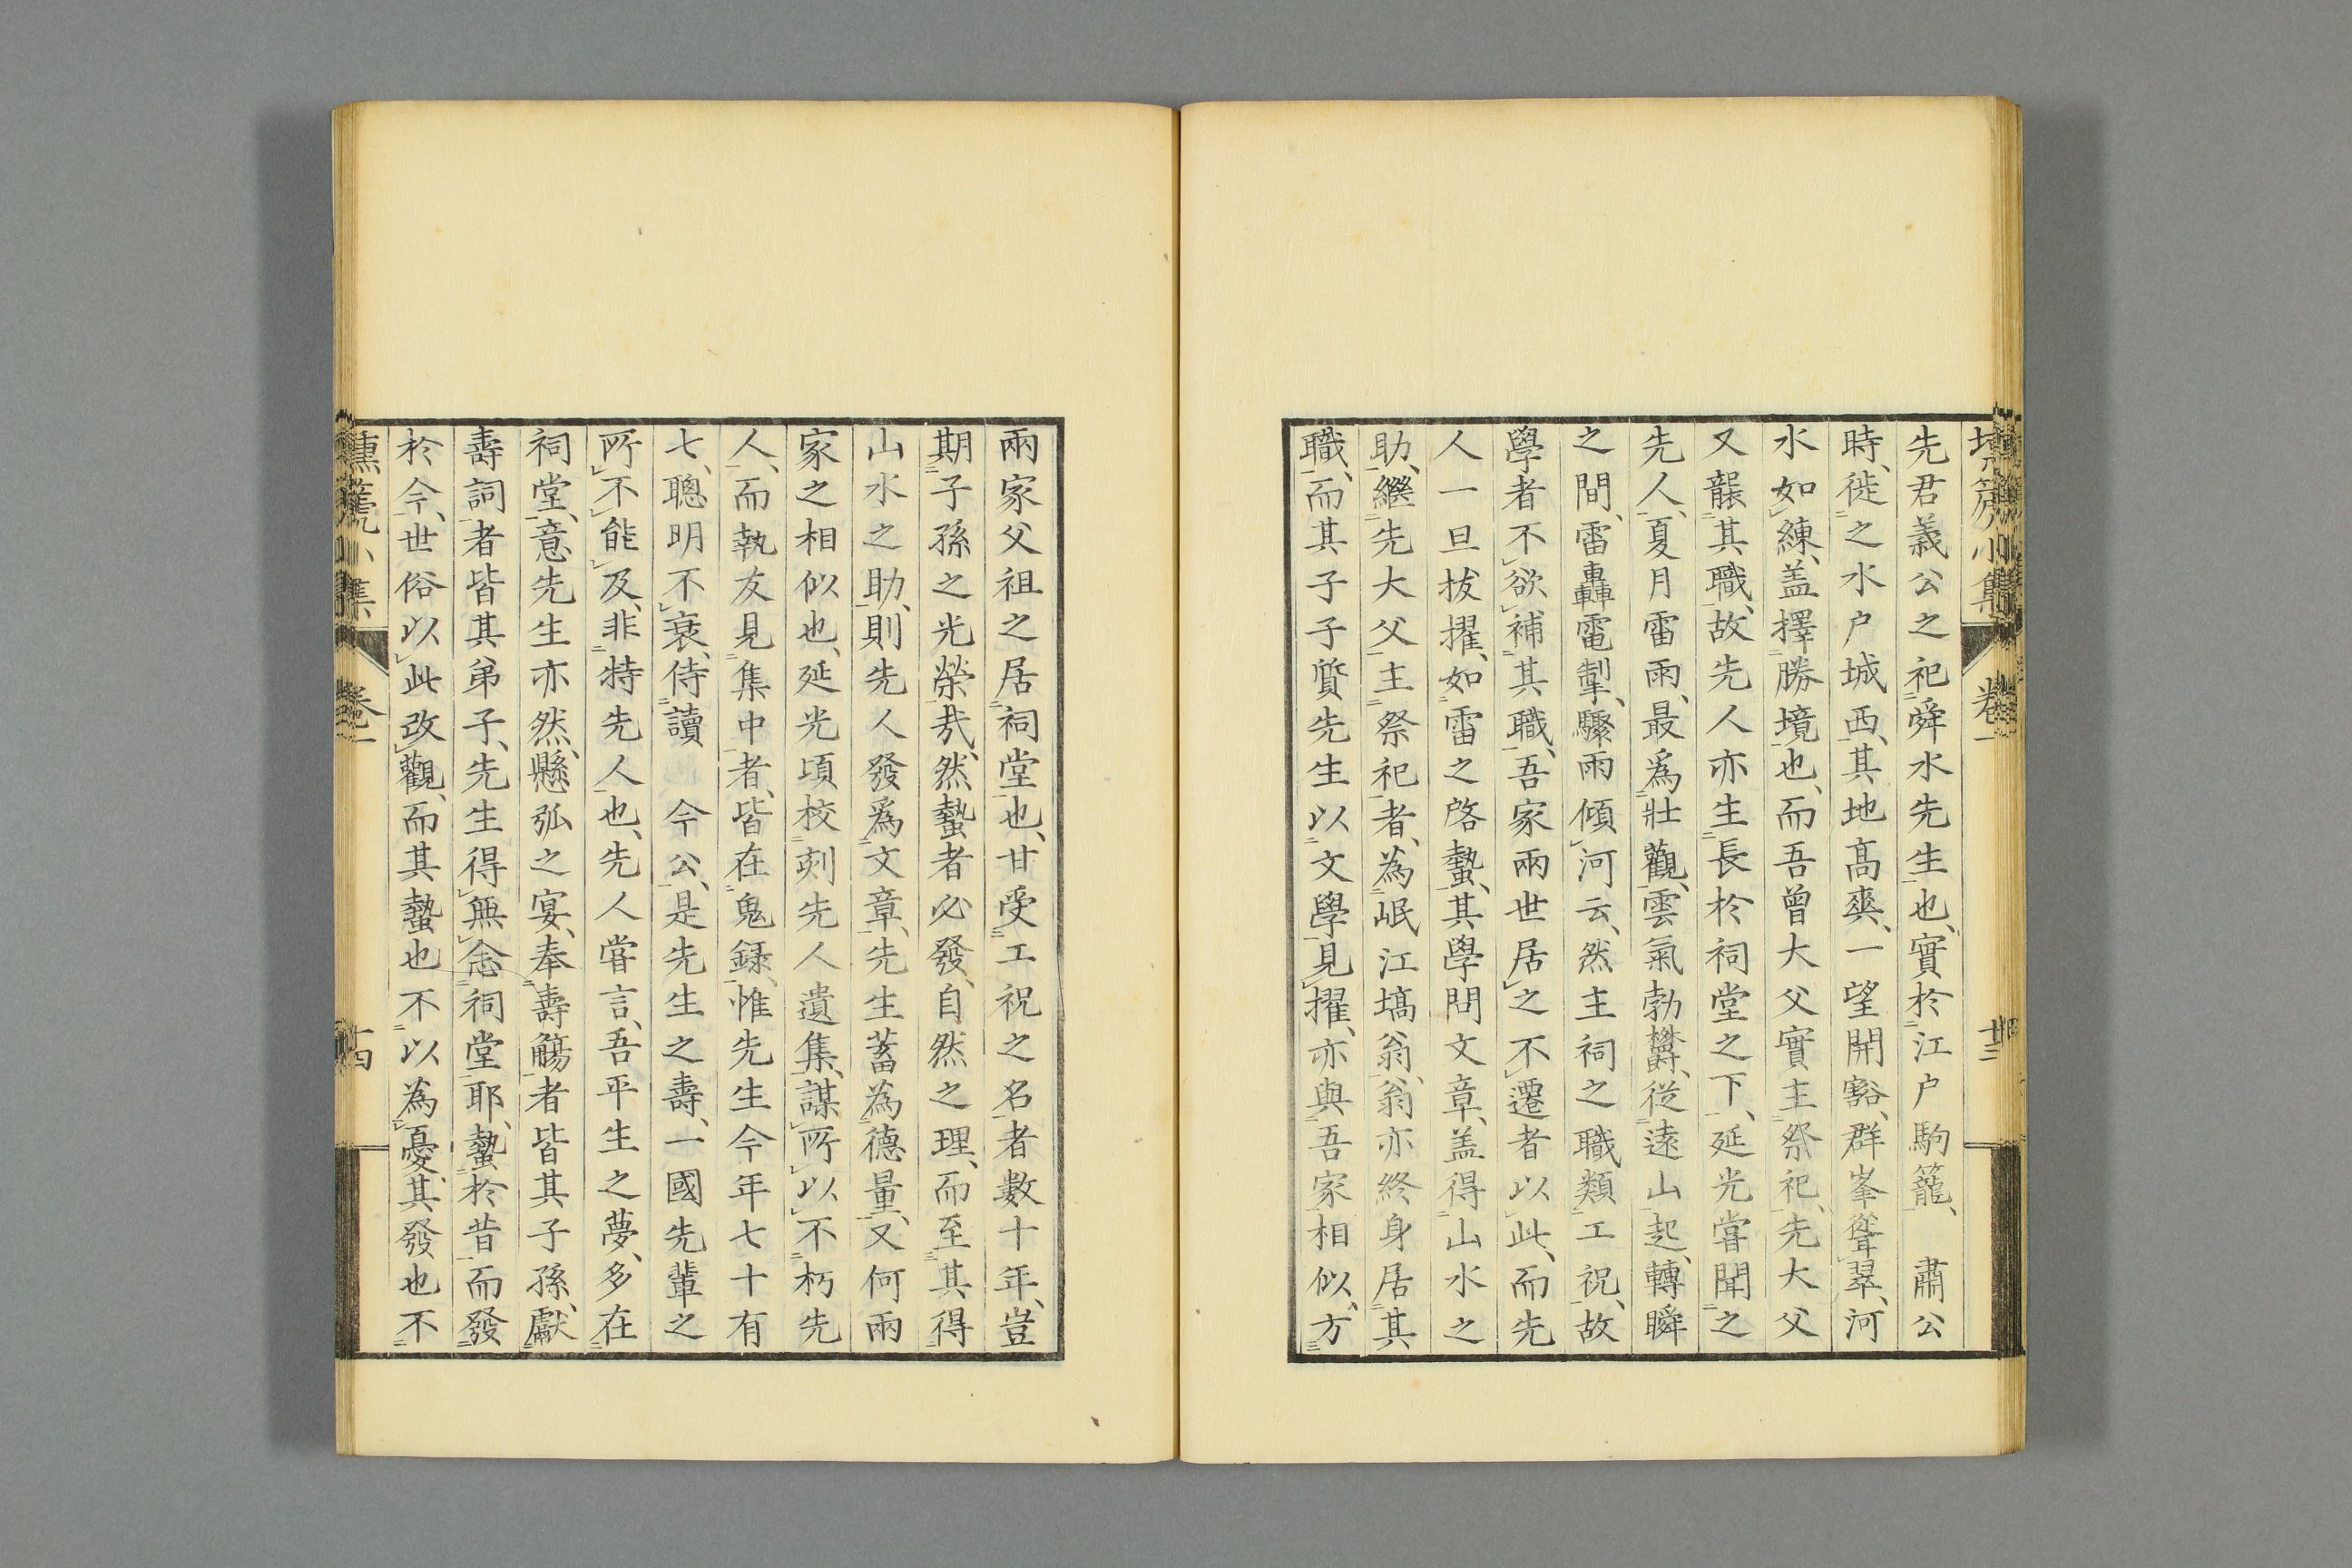 先君義公之祀舜水先生也、實於江户駒籠、　肅公
時、徙之水户城西、其地髙爽、一望開豁、群峯聳翠、河
水如練、盖擇勝境也、而吾曾大父實主祭祀、先大父
又襲其職、故先人亦生長於祠堂之下、延光甞聞之
先人、夏月雷雨、最爲壯觀、雲氣勃欝、從遠山起、轉瞬
之間、雷轟電掣、驟雨傾河云、然主祠之職類工祝、故
學者不欲補其職、吾家兩世居之不遷者以此、而先
人一旦拔擢、如雷之啓蟄、其學問文章、盖得山水之
助、繼先大父主祭祀者、為岷江塙翁、翁亦終身居其
職、而其子子質先生以文學見擢、亦與吾家相似、方
兩家父祖之居祠堂也、甘受工祝之名者數十年、豈
期子孫之光榮哉、然蟄者必發、自然之理、而至其得
山水之助、則先人發爲文章、先生蓄為德量、又何兩
家之相似也、延光頃校刻先人遺集、謀所以不朽先
人、而執友見集中者、皆在鬼録、惟先生今年七十有
七、聰明不衰、侍讀　今公、是先生之壽、一國先輩之
所不能及、非特先人也、先人甞言、吾平生之夢、多在
祠堂、意先生亦然、懸弧之宴、奉壽觴者皆其子孫、獻
壽詞者皆其弟子、先生得無念祠堂耶、蟄於昔而發
於今、世俗以此改觀、而其蟄也不以為憂、其發也不
小集
卷一